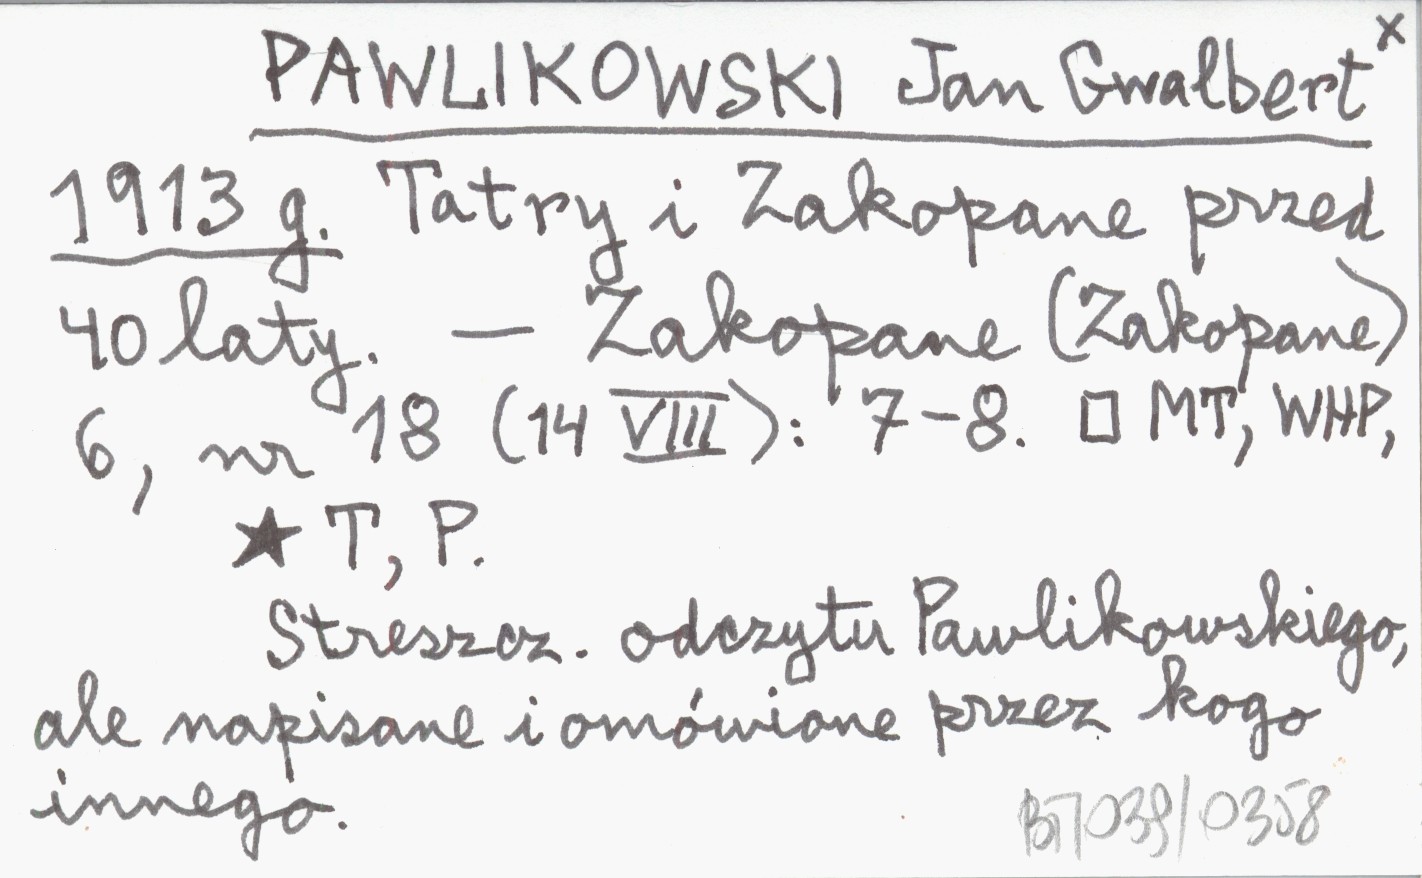 PAWLIKOWSKI Jan Gwalbert x
1913 g. Tatry i Zakopane przed
40 laty. — Zakopane (Zakopane)
6, nr 18 (14 VIII): 7-8. □ MT, WHP,
★ T, P.
Streszcz. odczytu Pawlikowskiego,
ale napisane i omówione przez kogo
innego.
BT/039/0358